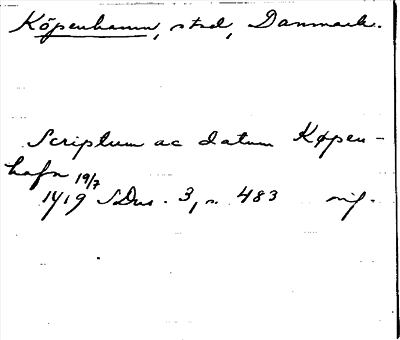 Köpenhamn, stad, Danmark.
Scriptum ac datum Køpen-
hafn 19/7
1419 SDns. 3, s. 483 orig.